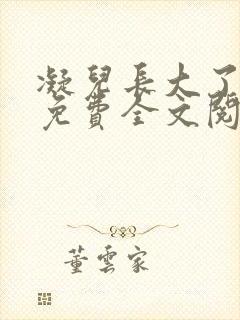 凝兒長大了
免費全文閱
董雲家